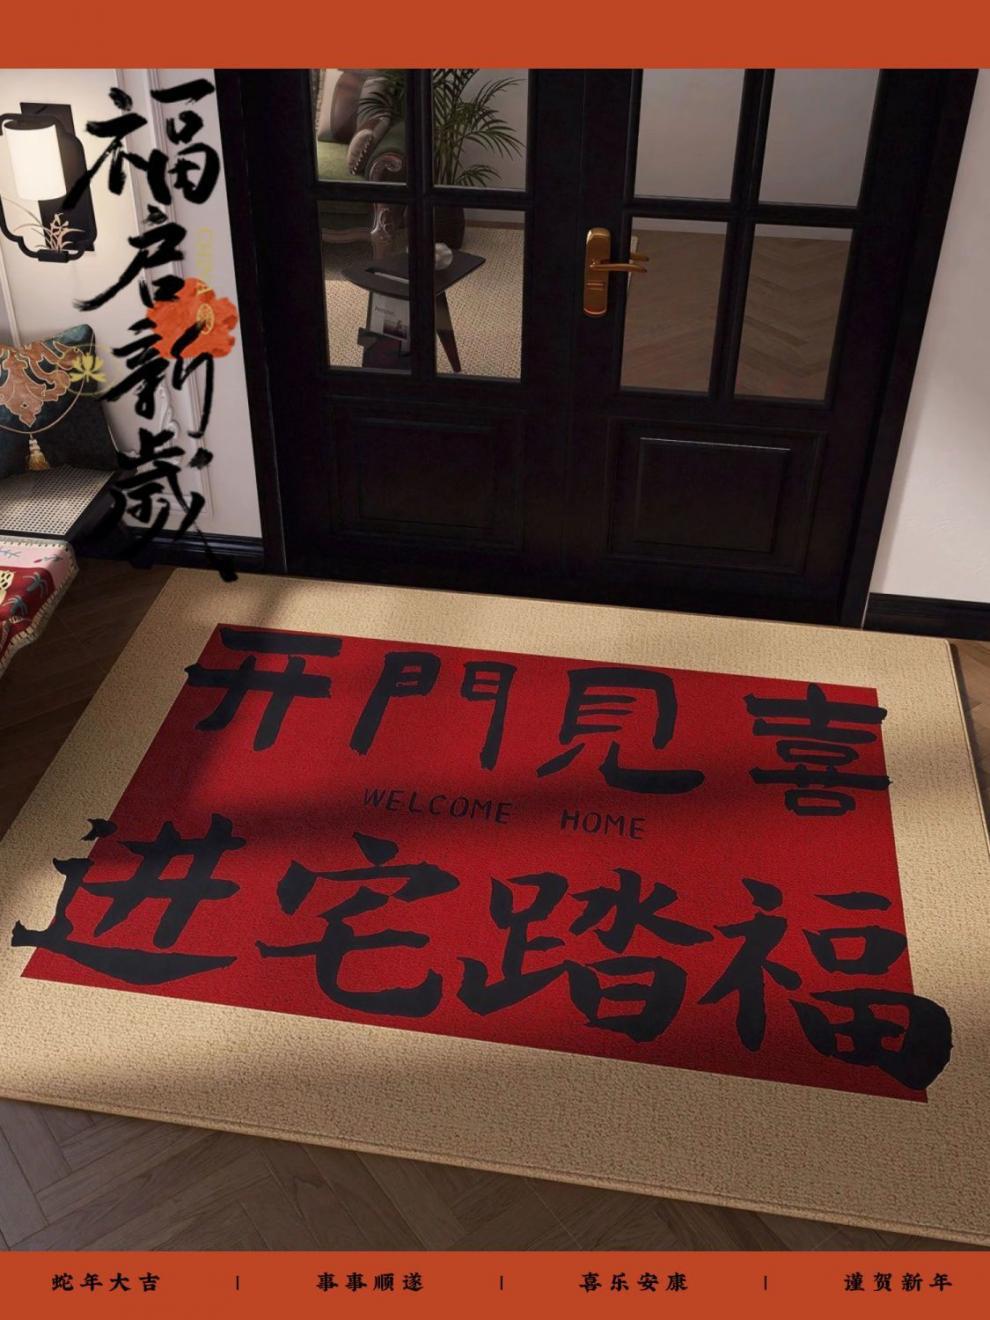 福启新歲
CHINA
开門見喜
WELCOME HOME
进宅踏福
蛇年大吉 | 事事顺遂 | 喜乐安康 | 谨贺新年